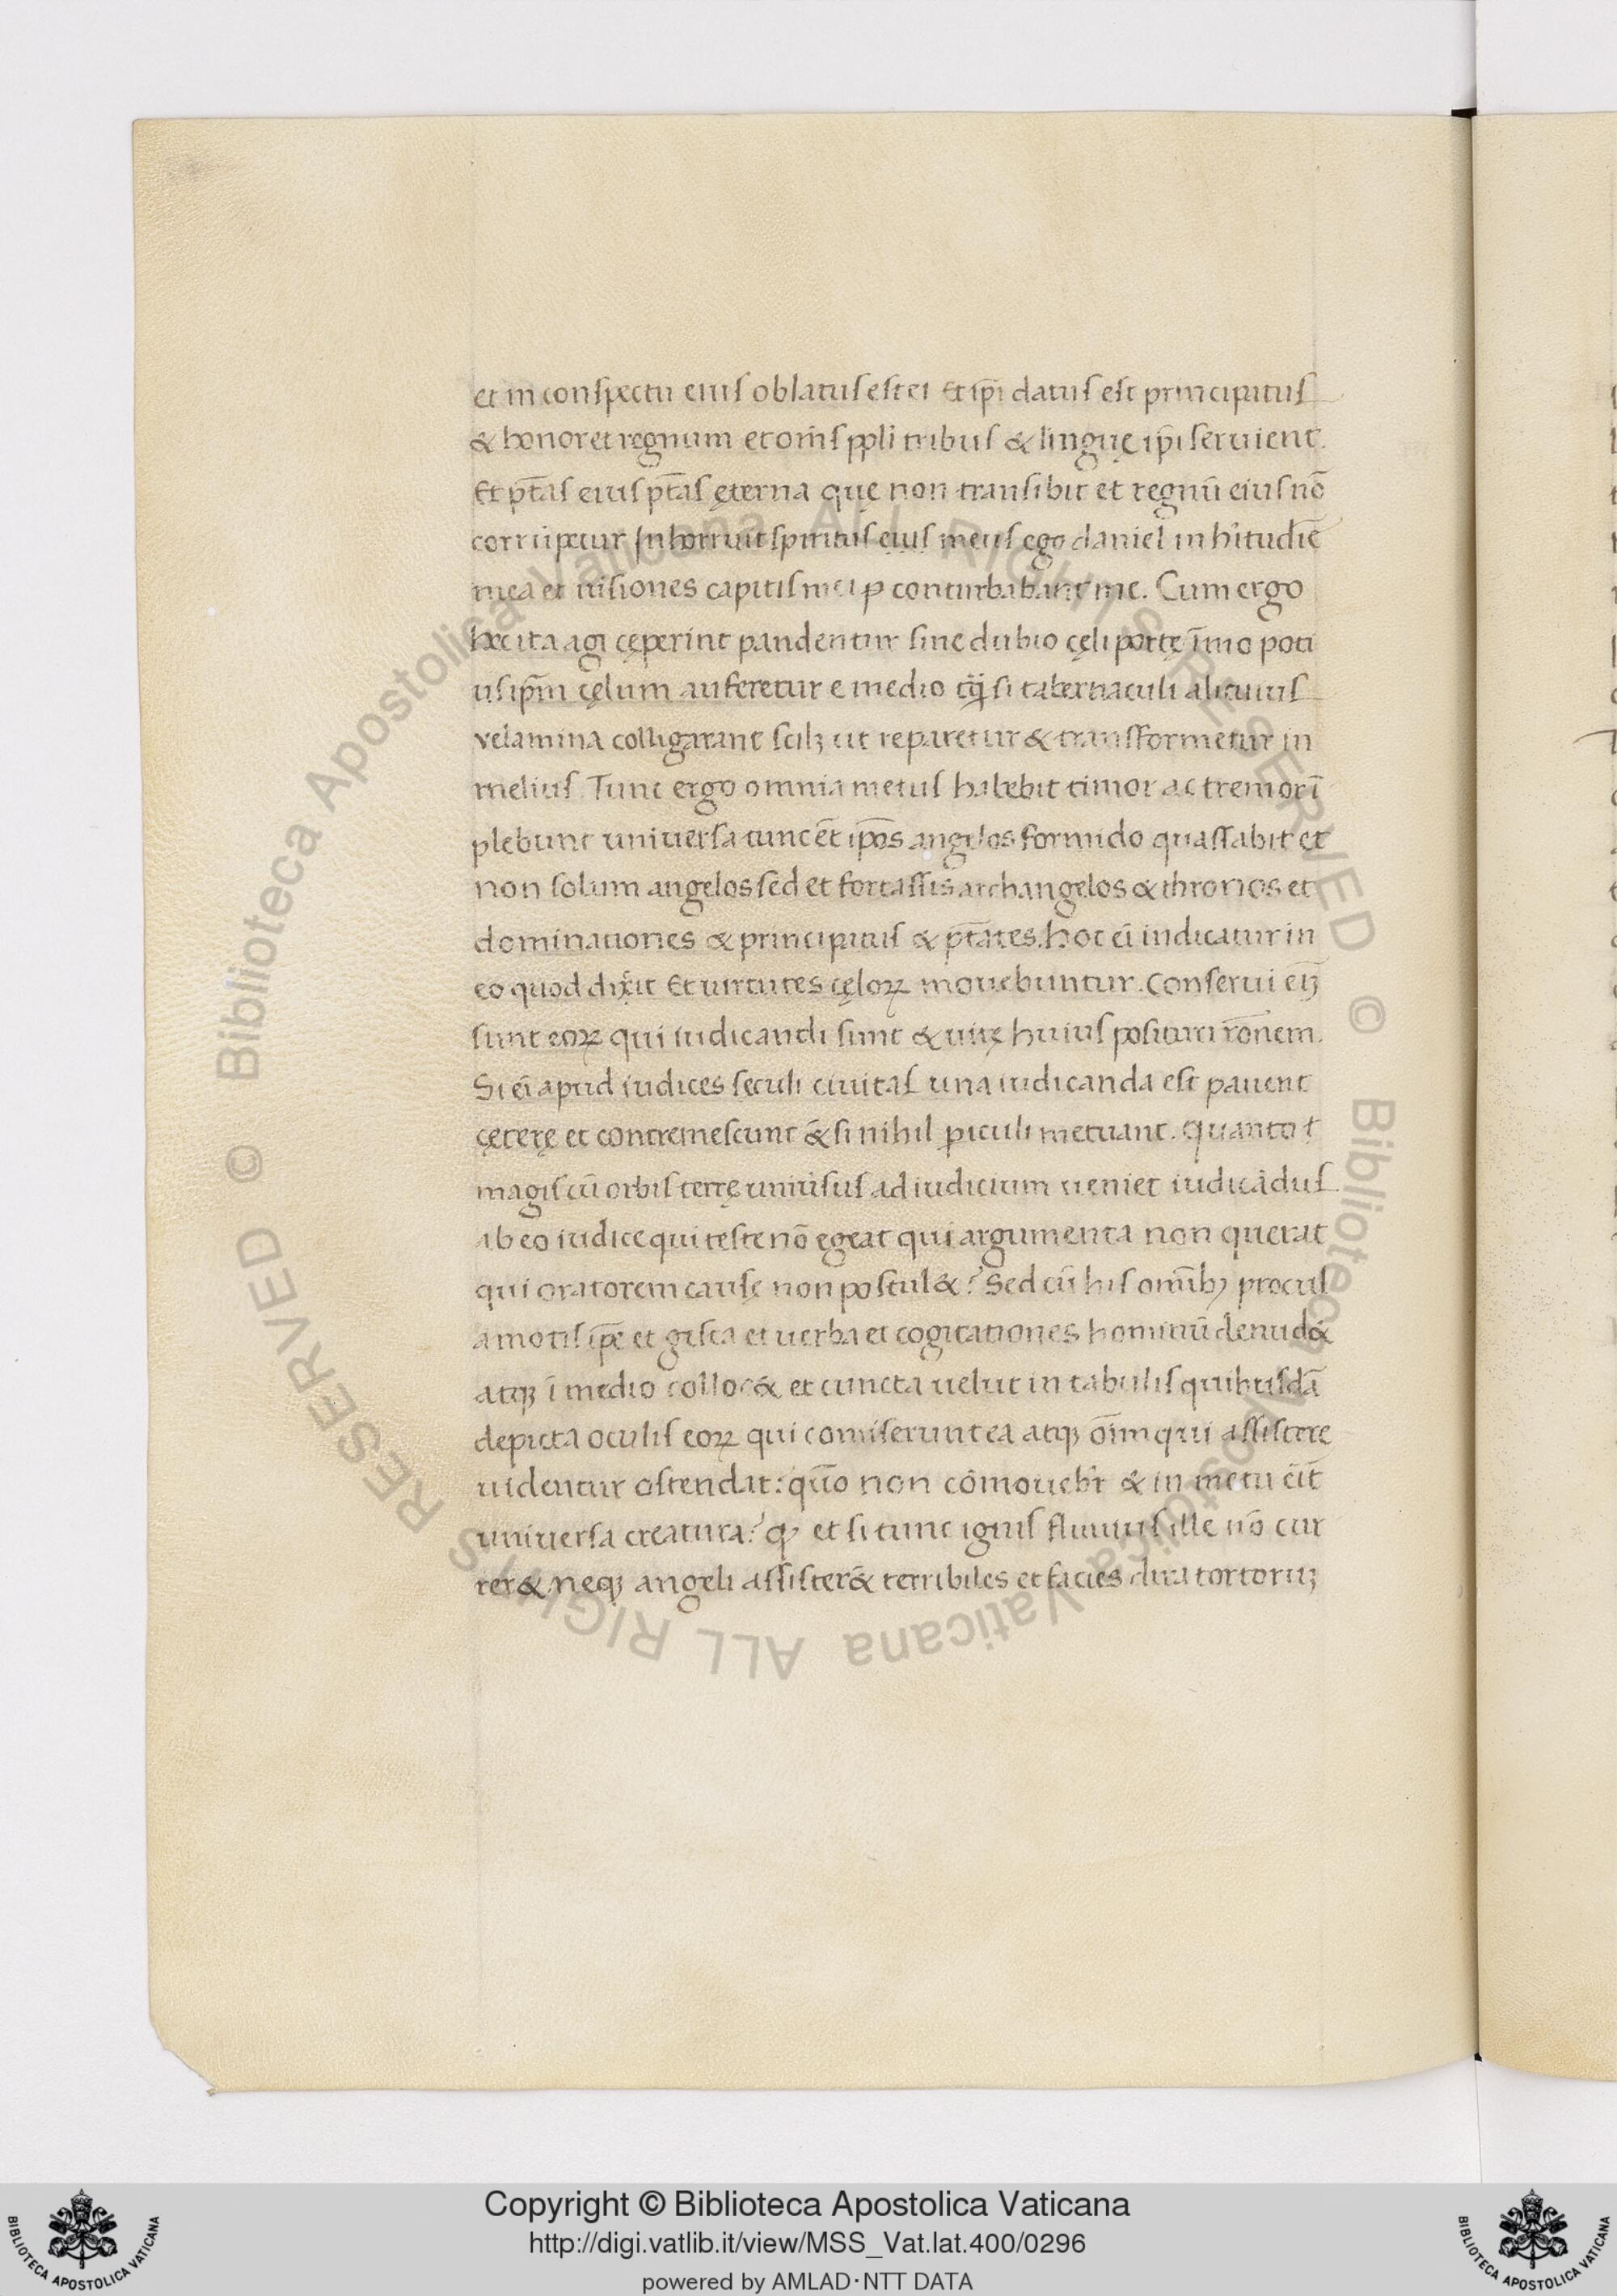 et in conspectu eius oblatus est ei Et ip̄i datus est principatus
& honor et regnum et om̄s ppl̄i tribus & linguę ip̄i seruient.
Et pt̄as eius pt̄as ęterna quę non transibit et regnū eius nō
corrūpetur Inhorruit spiritus eius meus ego daniel in h̓itudīe
mea et uisiones capitis mei ꝑconturbabant me. Cum ergo
hęc ita agi cęperint pandentur sine dubio cęli portę īmo poti
us ip̄m cęlum auferetur e medio si tabernaculi alicuius
velamina colligarant scilꝫ ut reparetur & transformetur in
melius. Tunc ergo omnia metus habebit timor ac tremor ī
plebunt universa tunc ēt ip̄os angelos formido quassabit et
non solum angelos sed et fortassis archangelos & thronos et
dominationes & principatus & pt̄ates. hoc ei̅ indicatur in
eo quod dixit Et uirtutes cęloꝝ movebuntur. Conserui eiꝫ
sunt eoꝝ qui iudicandi sunt & uitę huius posituri rōnem.
Si ei̅ apud iudices seculi civitas una iudicanda est pauent
cęterę et contremescunt & si nihil ꝑiculi metuant. quanto
magis cū orbis terrę uniūsus ad iudicium ueniet iudicādus
ab eo iudice qui teste nō egeat qui argumenta non querat
qui oratorem causę non postul&? Sed cū his omībꝫ procul
amotis ip̄e et gesta et uerba et cogitationes hominū denud&
atqꝫ ī medio colloc& et cuncta uelut in tabulis quibusdā
depicta oculis eoꝝ qui comiserunt ea atqꝫ oīm qui assistere
uidentur ostendat: quō non cōmouebr̄ & in metu eīt
universa creatura? et si tunc ignis fluuius ille nō cur
rer& neqꝫ angeli assister& terribiles et facies dira tortoruꝫ
Copyright © Biblioteca Apostolica Vaticana
http://digi.vatlib.it/view/MSS_Vat.lat.400/0296
powered by AMLAD·NTT DATA
BIBLIOTECA APOSTOLICA VATICANA
BIBLIOTECA APOSTOLICA VATICANA
© Biblioteca Apostolica Vaticana ALL RIGHTS RESERVED © Biblioteca Apostolica Vaticana ALL RIGHTS RESERVED